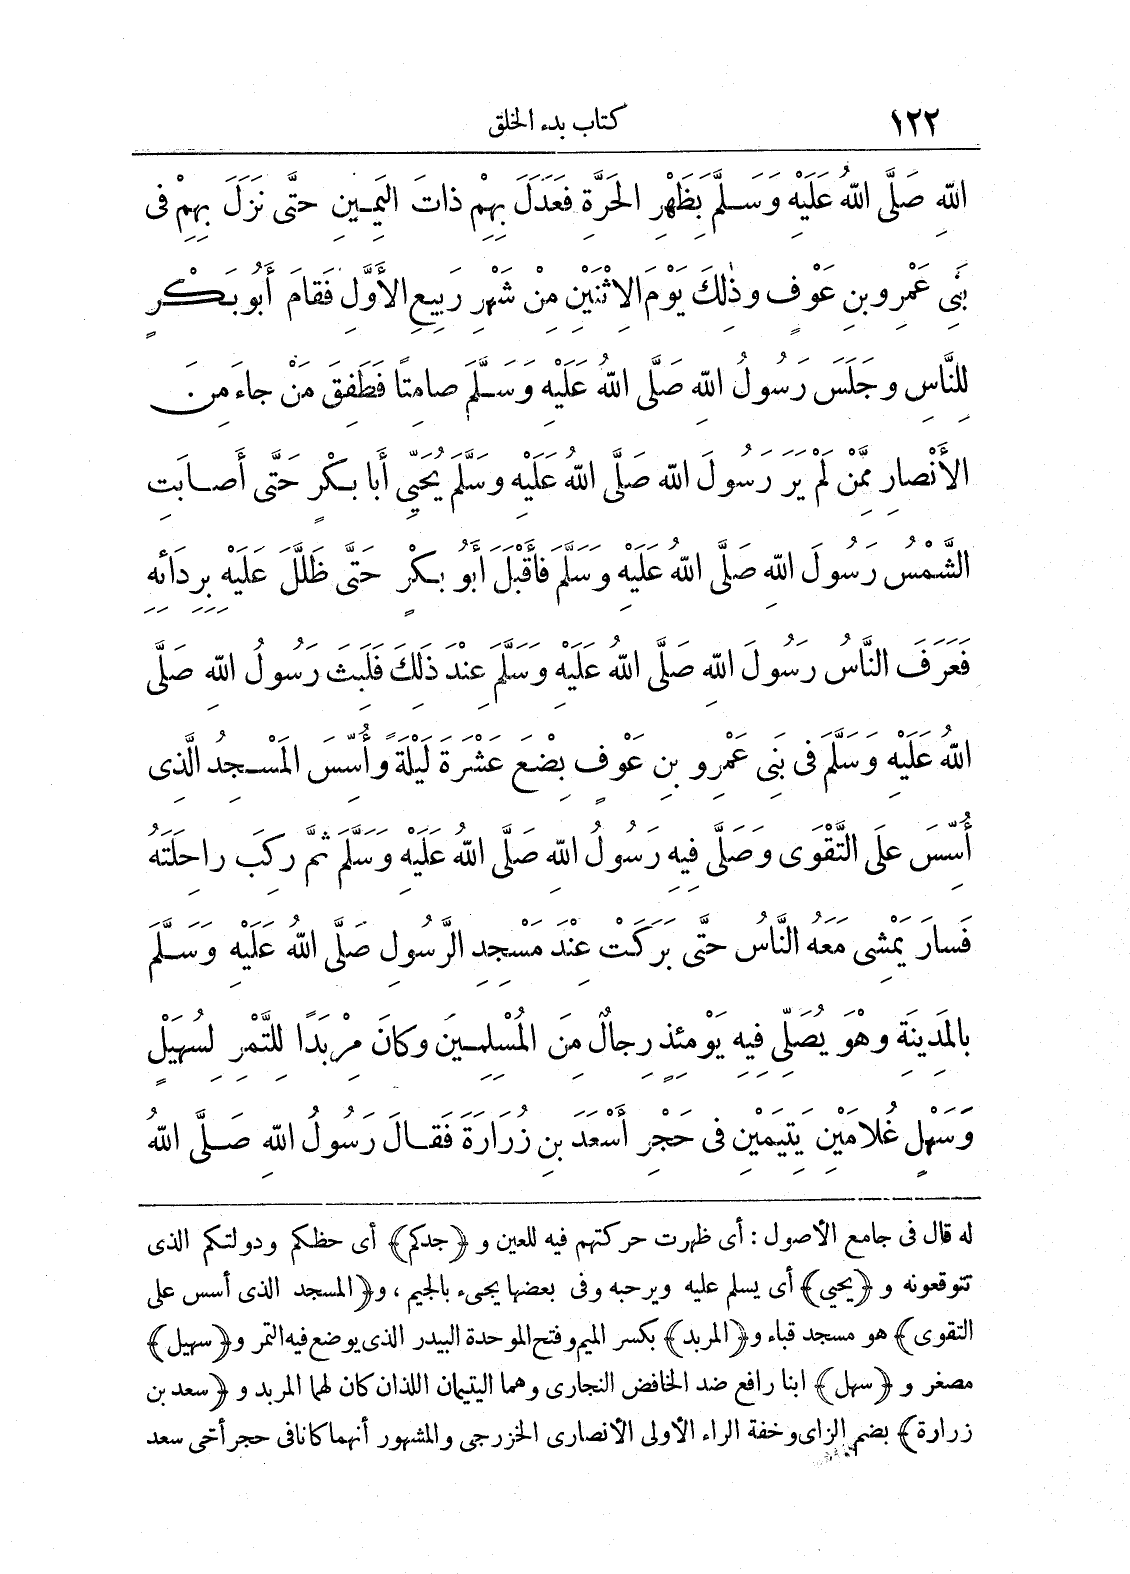 ١٢٢ كتاب بدء الخلق
اللهِ صَلَّى اللهُ عَلَيْهِ وَسَلَّمَ بِظَهْرِ الحَرَّةِ فَعَدَلَ بِهِمْ ذاتَ اليَمِينِ حتَّى نَزَلَ بِهِمْ فى
بَنِى عَمْرِو بنِ عَوْفٍ وذٰلِكَ يَوْمَ الاِثْنَيْنِ مِنْ شَهْرِ رَبِيعِ الأَوَّلِ فَقامَ أَبُو بَكْرٍ
لِلنَّاسِ وجَلَسَ رَسُولُ اللهِ صَلَّى اللهُ عَلَيْهِ وَسَلَّمَ صامِتًا فَطَفِقَ مَنْ جاءَ مِنَ
الأَنْصارِ مِمَّنْ لَمْ يَرَ رَسُولَ اللهِ صَلَّى اللهُ عَلَيْهِ وَسَلَّمَ يُحَيِّي أَبا بَكْرٍ حَتَّى أَصابَتِ
الشَّمْسُ رَسُولَ اللهِ صَلَّى اللهُ عَلَيْهِ وَسَلَّمَ فَأَقْبَلَ أَبُو بَكْرٍ حَتَّى ظَلَّلَ عَلَيْهِ بِرِدَائِهِ
فَعَرَفَ النَّاسُ رَسُولَ اللهِ صَلَّى اللهُ عَلَيْهِ وَسَلَّمَ عِنْدَ ذَلِكَ فَلَبِثَ رَسُولُ اللهِ صَلَّى
اللهُ عَلَيْهِ وَسَلَّمَ فى بَنِى عَمْرِو بنِ عَوْفٍ بِضْعَ عَشْرَةَ لَيْلَةً وأُسِّسَ المَسْجِدُ الَّذِى
أُسِّسَ عَلَى التَّقْوَى وَصَلَّى فِيهِ رَسُولُ اللهِ صَلَّى اللهُ عَلَيْهِ وَسَلَّمَ ثمَّ رَكِبَ راحِلَتَهُ
فَسارَ يَمْشِى مَعَهُ النَّاسُ حتَّى بَرَكَتْ عِنْدَ مَسْجِدِ الرَّسُولِ صَلَّى اللهُ عَلَيْهِ وَسَلَّمَ
بالمَدِينَةِ وهْوَ يُصَلِّى فِيهِ يَوْمَئِذٍ رِجالٌ مِنَ المُسْلِمِينَ وكانَ مِرْبَدًا لِلتَّمْرِ لِسُهَيْلٍ
وَسَهْلٍ غُلامَيْنِ يَتِيمَيْنِ فى حَجْرِ أَسْعَدَ بنِ زُرَارَةَ فَقَالَ رَسُولُ اللهِ صَلَّى اللهُ
له قال فى جامع الأصول : أى ظهرت حركتهم فيه للعين و ﴿جدكم﴾ أى حظكم ودولتكم الذى
تتوقعونه و ﴿يحيي﴾ أى يسلم عليه ويرحبه وفى بعضها يجىء بالجيم ، و﴿المسجد الذى أسس على
التقوى﴾ هو مسجد قباء و﴿المربد﴾ بكسر الميم وفتح الموحدة البيدر الذى يوضع فيه التمر و﴿سهيل﴾
مصغر و ﴿سهل﴾ ابنا رافع ضد الخافض النجارى وهما اليتيمان اللذان كان لهما المربد و ﴿سعد بن
زرارة﴾ بضم الزاى وخفة الراء الأولى الأنصارى الخزرجى والمشهور أنهما كانا فى حجر أخى سعد